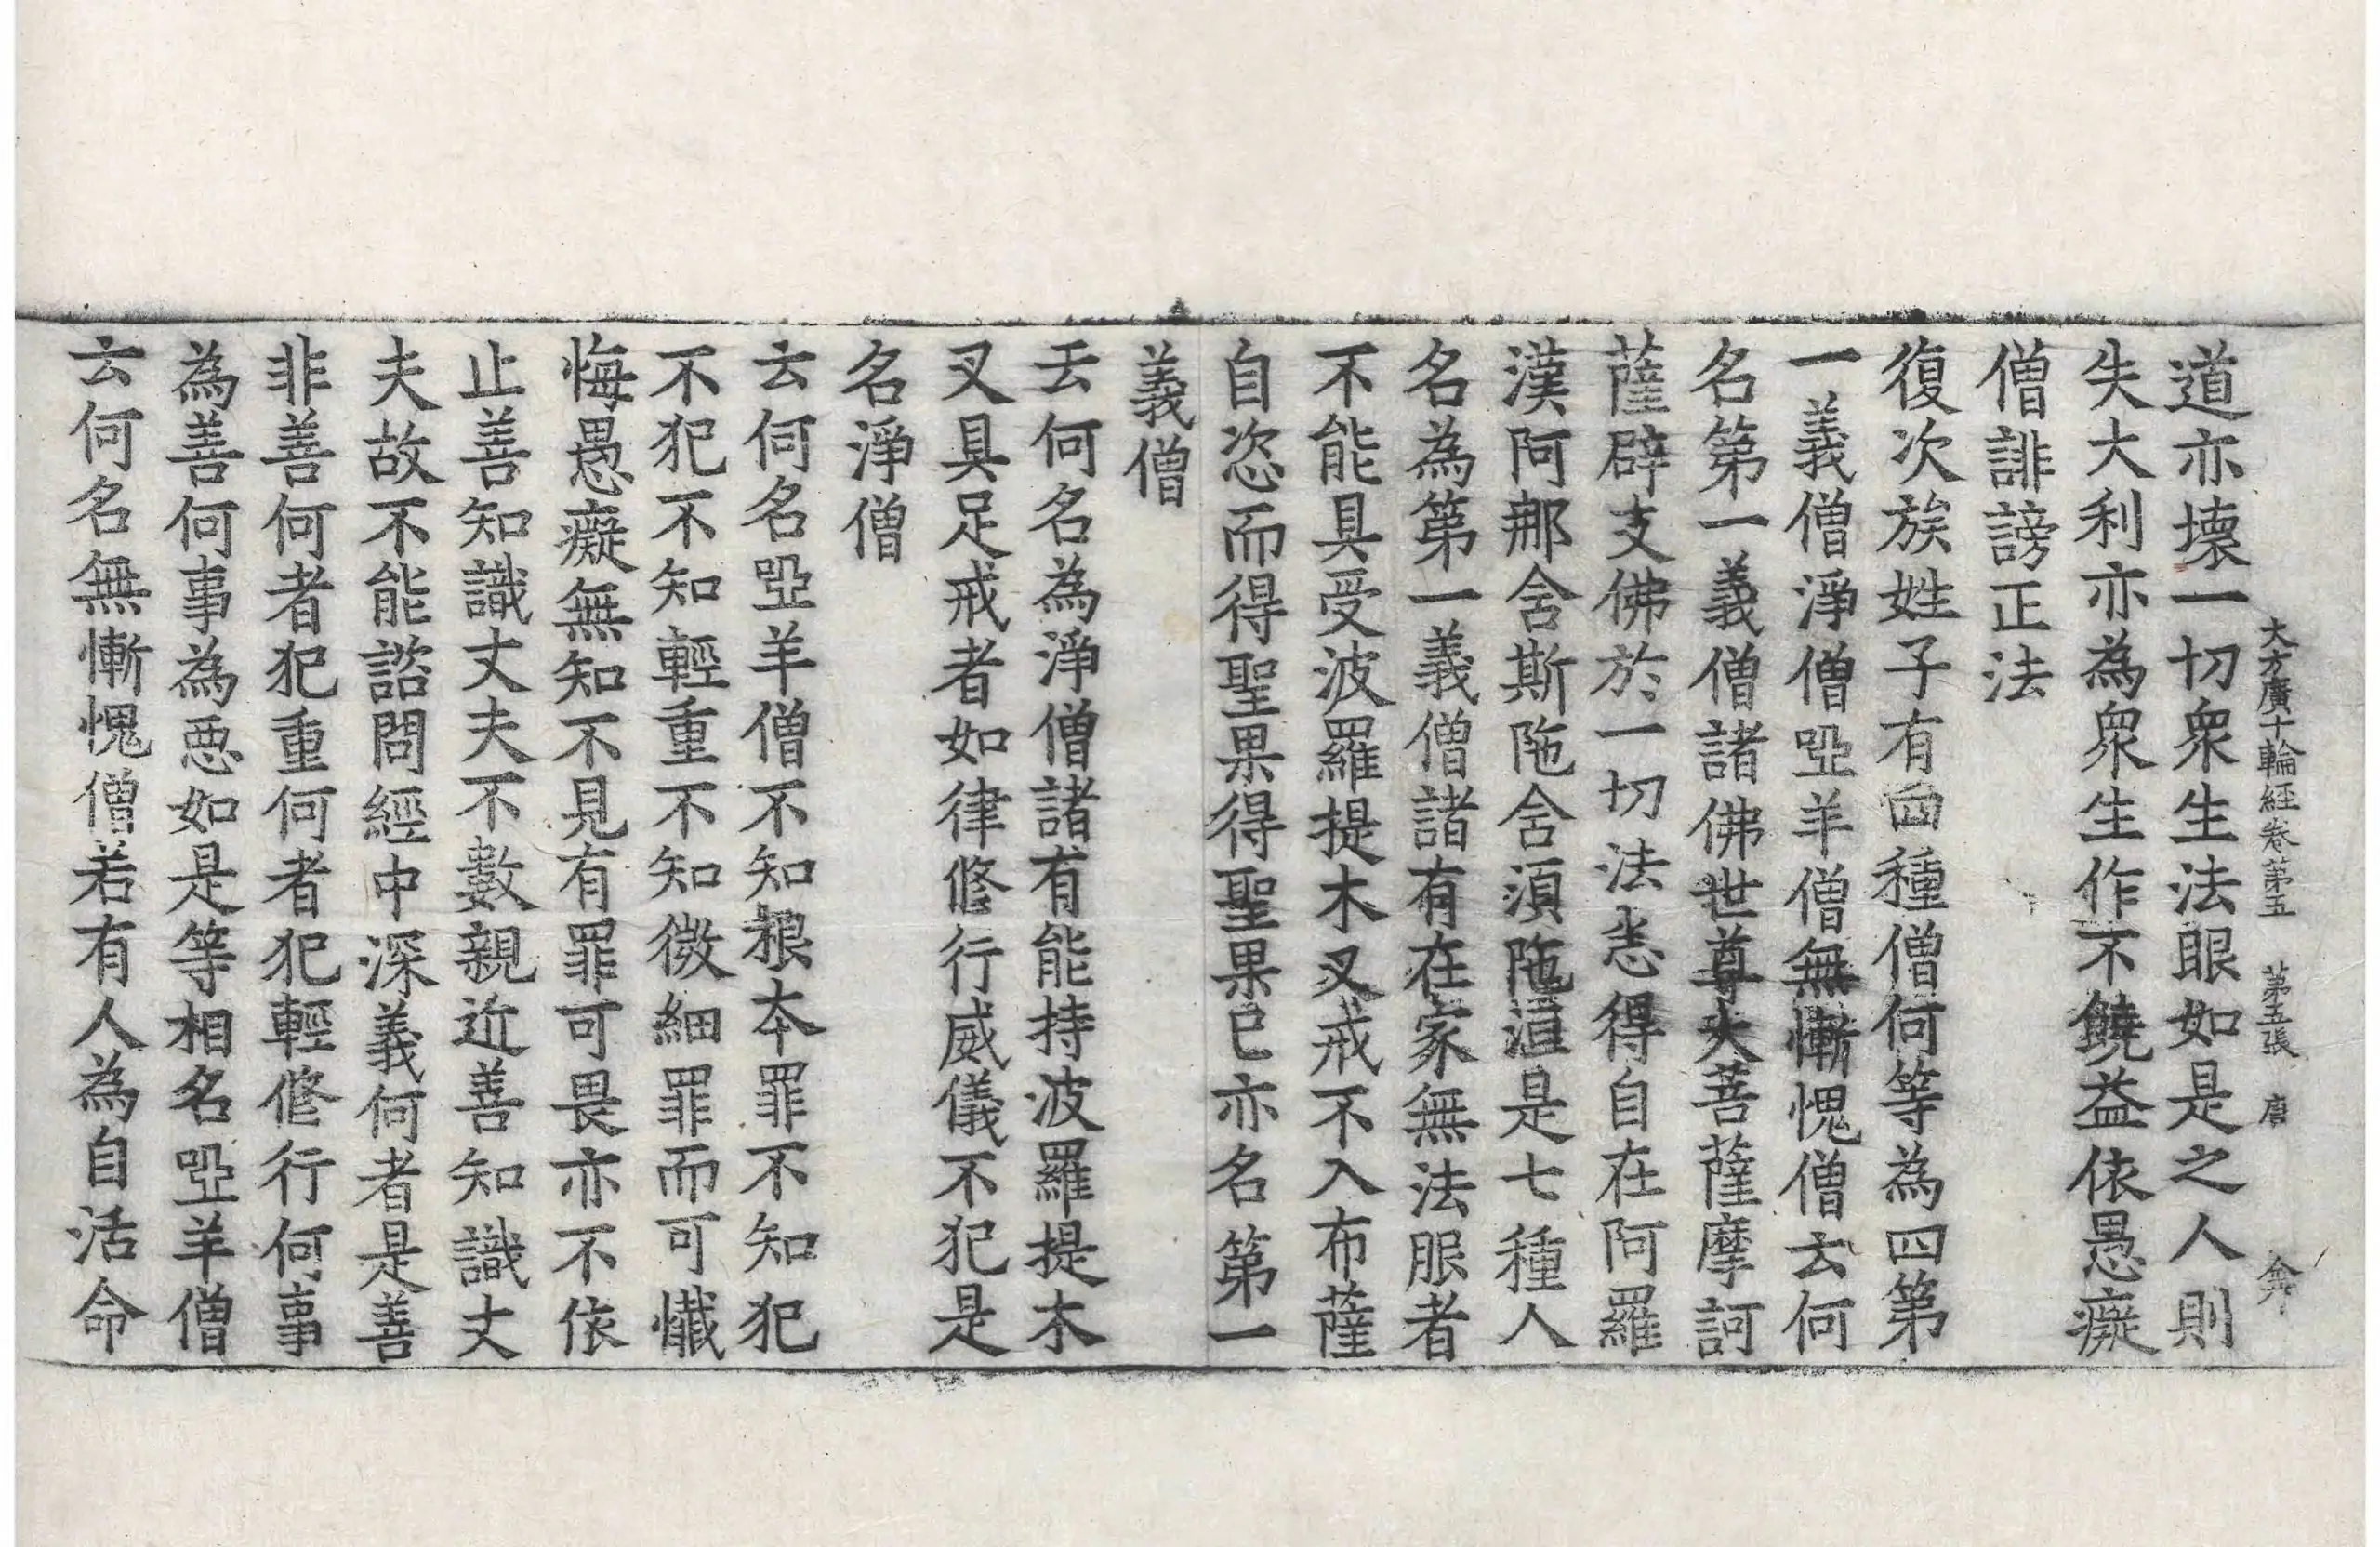 大方廣十輪經卷第五 第五張 唐
道亦壞一切衆生法眼如是之人則
失大利亦為衆生作不饒益依愚癡
僧誹謗正法
復次族姓子有四種僧何等為四第
一義僧淨僧啞羊僧無慚愧僧云何
名第一義僧諸佛世尊大菩薩摩訶
薩辟支佛於一切法悉得自在阿羅
漢阿那舍斯陁含湏陁洹是七種人
名為第一義僧諸有在家無法服者
不能具受波羅提木叉戒不入布薩
自恣而得聖果得聖果已亦名第一
義僧
云何名為淨僧諸有能持波羅提木
叉具足戒者如律修行威儀不犯是
名淨僧
云何名啞羊僧不知根本罪不知犯
不犯不知輕重不知微細罪而可懺
悔愚癡無知不見有罪可畏亦不依
止善知識丈夫不數親近善知識丈
夫故不能諮問經中深義何者是善
非善何者犯重何者犯輕修行何事
為善何事為惡如是等相名啞羊僧
云何名無慚愧僧若有人為自活命